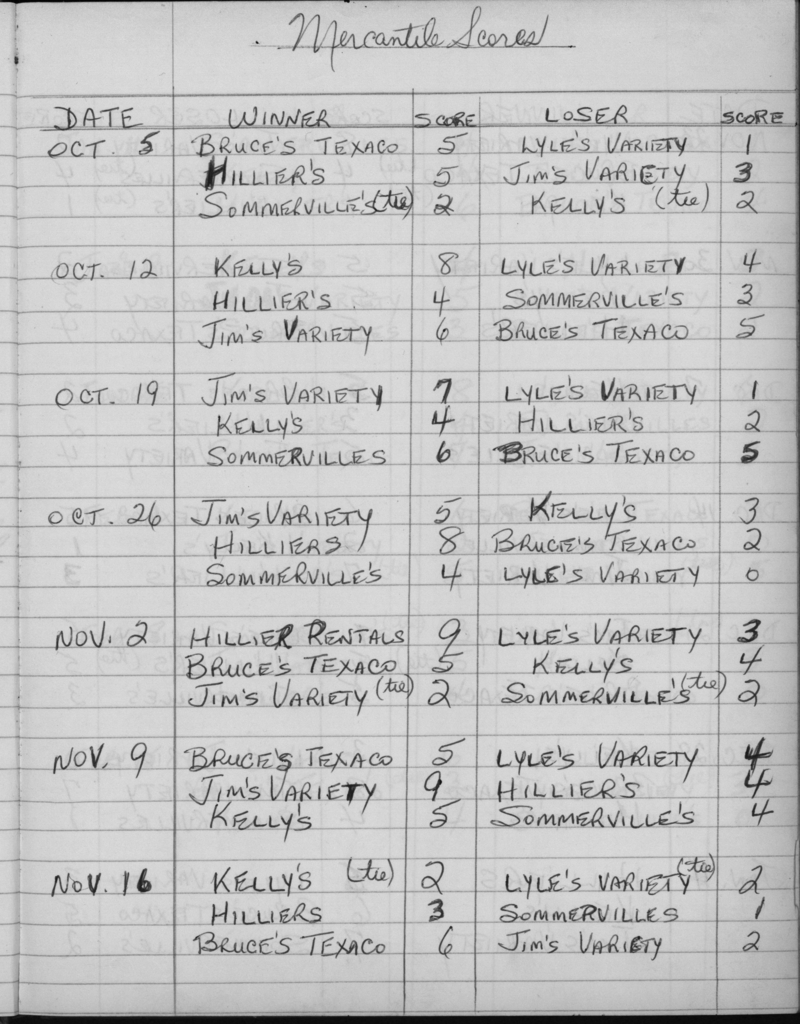 Mercantile Scores
DATE WINNER SCORE LOSER SCORE
OCT. 5 BRUCE'S TEXACO 5 LYLE'S VARIETY 1
HILLIER'S 5 JIM'S VARIETY 3
SOMMERVILLE'S (tie) 2 KELLY'S (tie) 2
OCT. 12 KELLY'S 8 LYLE'S VARIETY 4
HILLIER'S 4 SOMMERVILLE'S 3
JIM'S VARIETY 6 BRUCE'S TEXACO 5
OCT. 19 JIM'S VARIETY 7 LYLE'S VARIETY 1
KELLY'S 4 HILLIER'S 2
SOMMERVILLES 6 BRUCE'S TEXACO 5
OCT. 26 JIM'S VARIETY 5 KELLY'S 3
HILLIERS 8 BRUCE'S TEXACO 2
SOMMERVILLE'S 4 LYLE'S VARIETY 0
NOV. 2 HILLIER RENTALS 9 LYLE'S VARIETY 3
BRUCE'S TEXACO 5 KELLY'S 4
JIM'S VARIETY (tie) 2 SOMMERVILLE'S (tie) 2
NOV. 9 BRUCE'S TEXACO 5 LYLE'S VARIETY 4
JIM'S VARIETY 9 HILLIER'S 4
KELLY'S 5 SOMMERVILLE'S 4
NOV. 16 KELLY'S (tie) 2 LYLE'S VARIETY (tie) 2
HILLIERS 3 SOMMERVILLES 1
BRUCE'S TEXACO 6 JIM'S VARIETY 2